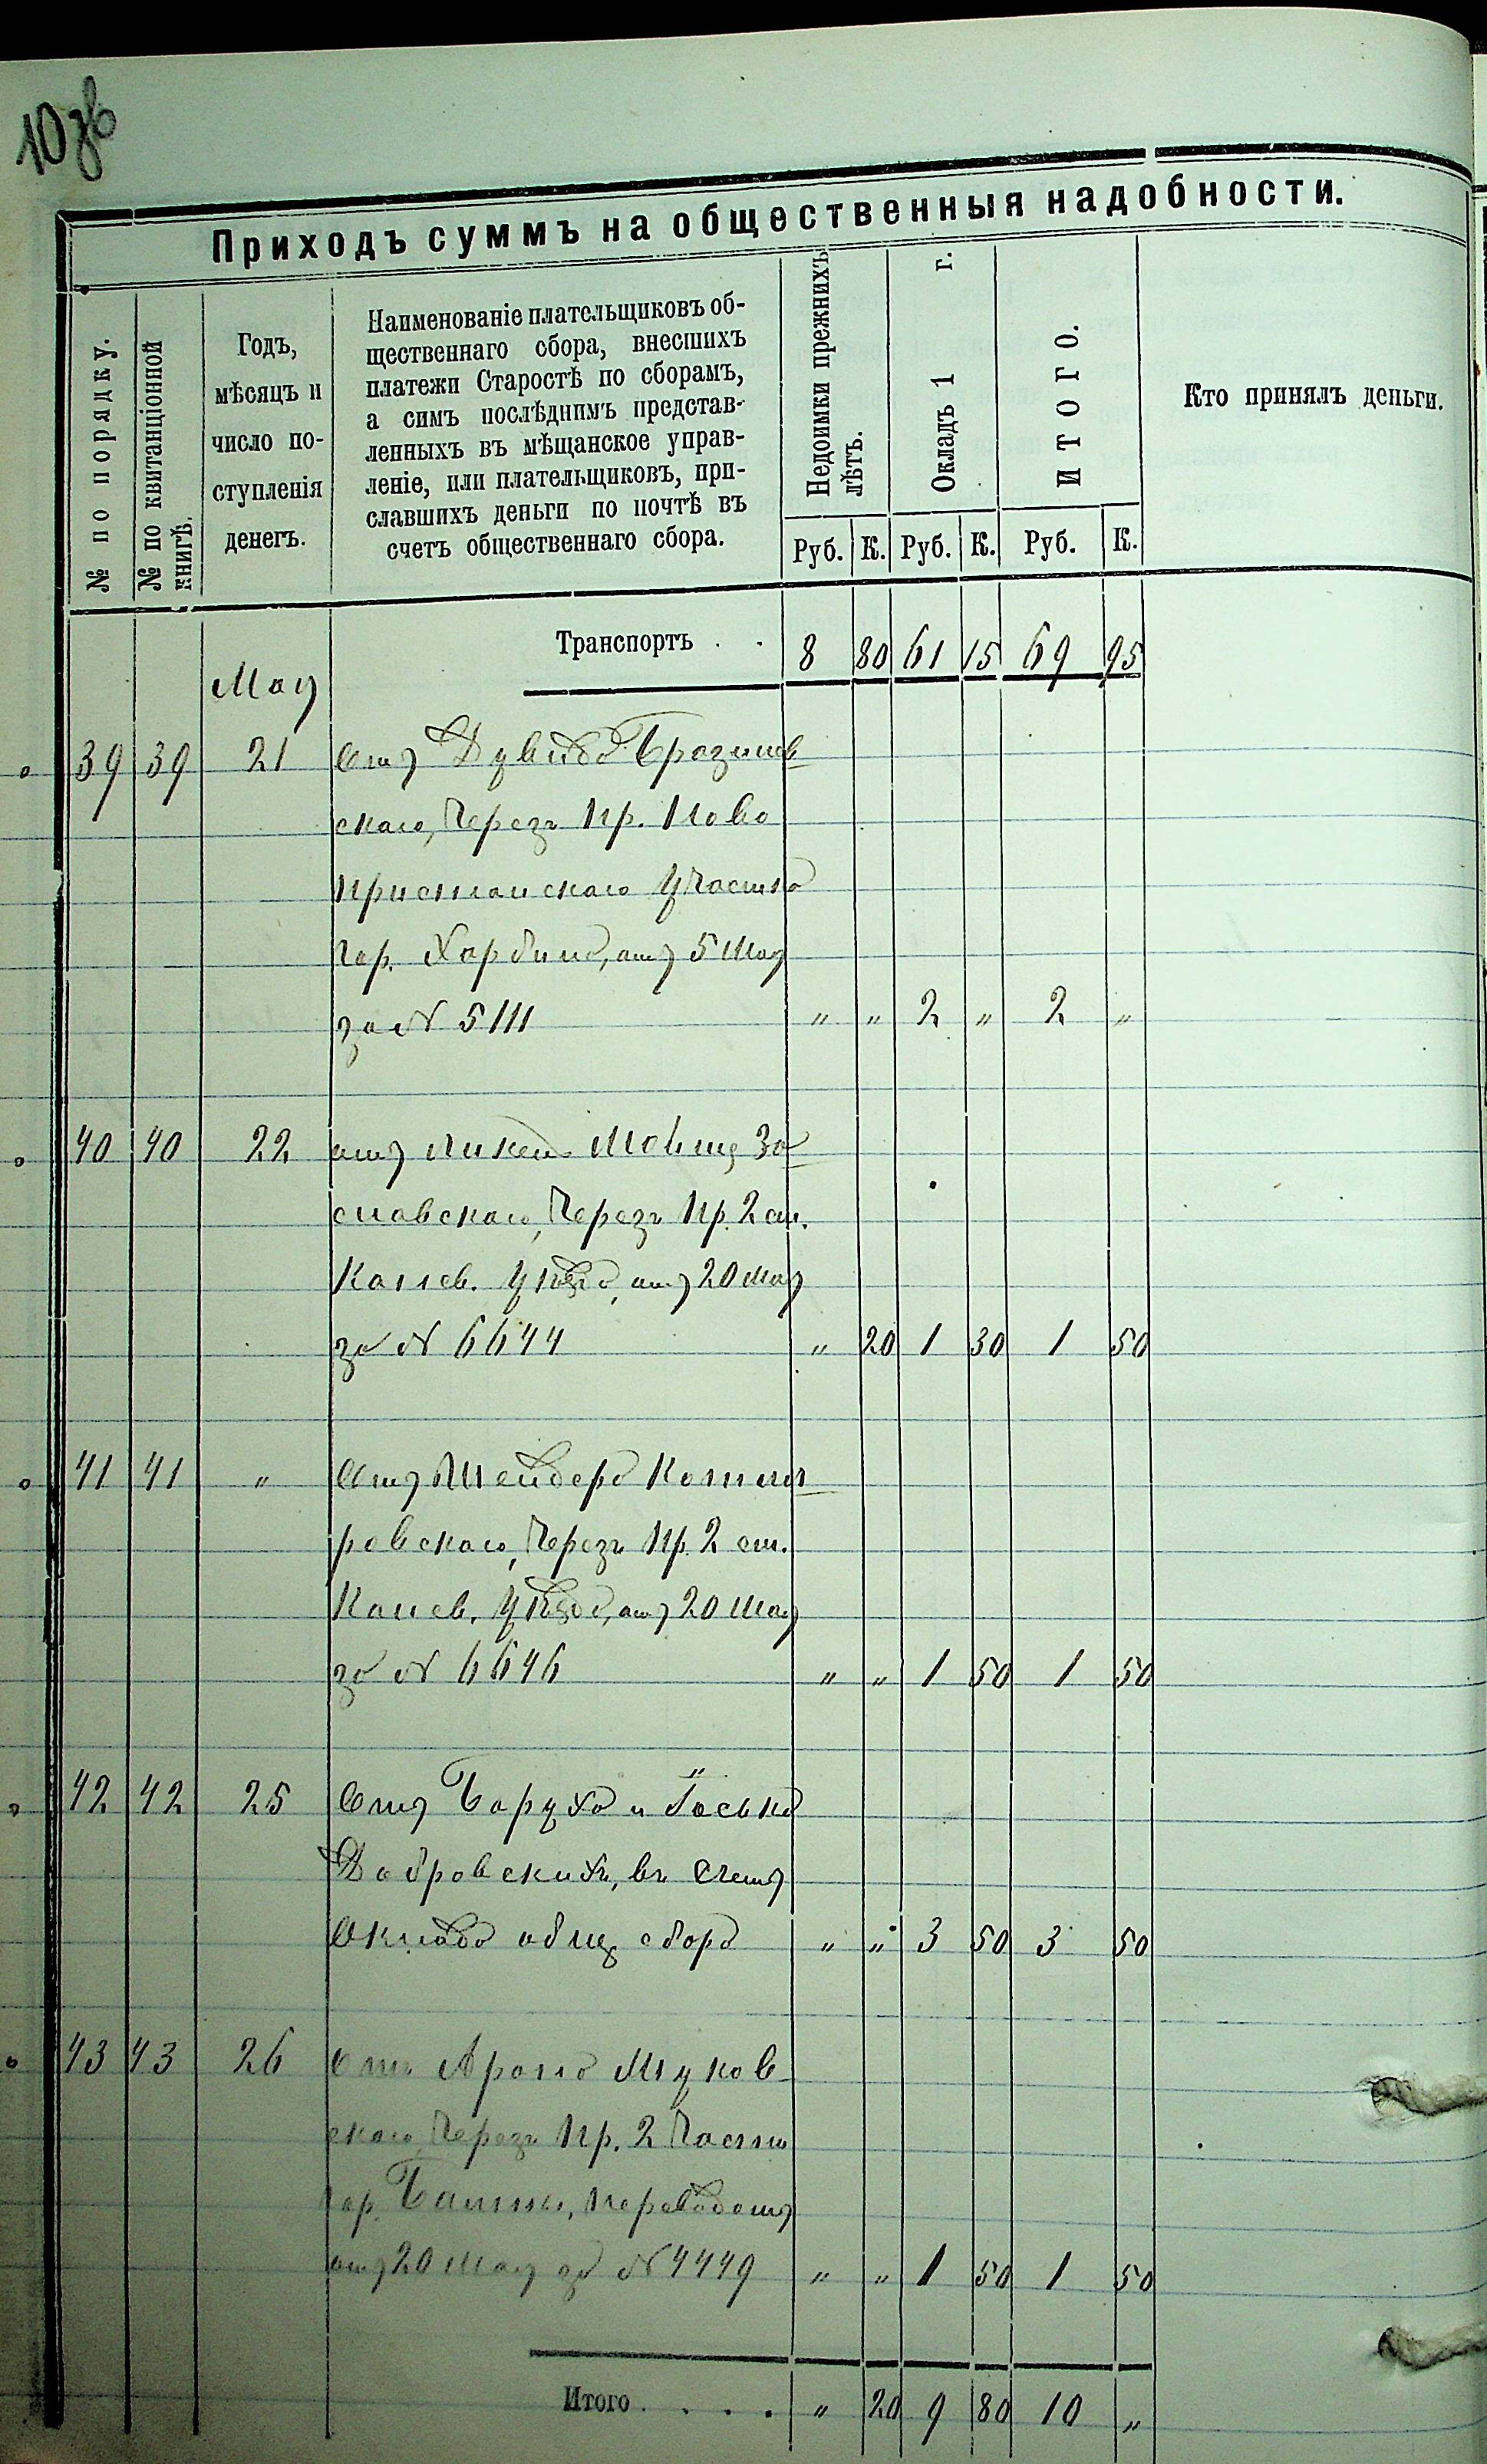 10 зв
Приходъ суммъ на общественныя надобности.
№ по порядку.
№ по квитанціонной книгѣ.
Годъ,
мѣсяцъ и
число по-
ступленія
денегъ.
Наименованіе плательщиковъ об-
щественнаго сбора, внесшихъ
платежи Старостѣ по сборамъ,
а симъ послѣднимъ представ-
ленныхъ въ мѣщанское управ-
леніе, или плательщиковъ, при-
славшихъ деньги по почтѣ въ
счетъ общественнаго сбора.
Недоимки прежнихъ лѣтъ.
Окладъ 1 г.
ИТОГО.
Кто принялъ деньги.
Руб. К. Руб. К. Руб. К.
Транспортъ . . 8 80 61 15 69 95
Мая
39 39 21 Отъ Дувида Бразинов
скаго, Черезъ Пр. Ново
Пристанскаго Участка
Гор. Харбина, отъ 5 Мая
за № 5111 " " 2 " 2 "
40 40 22 отъ Мовши За
славскаго, Черезъ Пр. 2 ст.
Канев. Уѣзда, отъ 20 Мая
за № 6644 " 20 1 30 1 50
41 41 " Отъ Шендера Котля
ревскаго, Черезъ Пр. 2 ст.
Канев. Уѣзда, отъ 20 Мая
за № 6646 " " 1 50 1 50
42 42 25 Отъ Баруха и Иоська
Добровскихъ, въ Счетъ
Оклада общ. сбора " " 3 50 3 50
43 43 26 Отъ Арона Мунов
скаго, Черезъ Пр. 2 Части
гор. Балты, переводомъ
отъ 20 Мая за № 4449 " " 1 50 1 50
Итого . . . . " 20 9 80 10 "